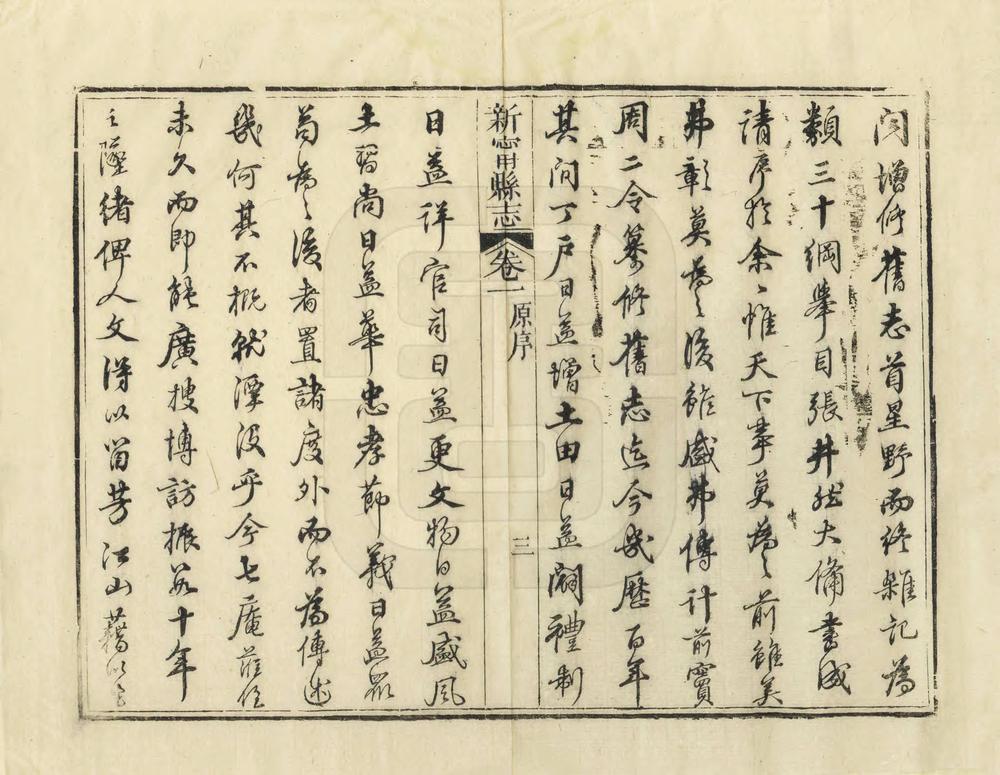 閱增修舊志首星野而終雜記為
類三十綱舉目張井然大備書成
請序於余余惟天下事莫為之前雖美
弗彰莫為之後雖盛弗傳計前竇
周二令纂修舊志迄今幾歷百年
其间丁戶日益增土田日益闢禮制
新寧縣志 卷一 原序 三
日益详官司日益更文物日益盛風
土習尚日益華忠孝節義日益眾
苟為之後者置諸度外而不為傳述
幾何其不概就湮没乎今七庵蒞任
未久而即能廣搜博訪振數十年
之墜緒俾人文得以留芳江山藉以生